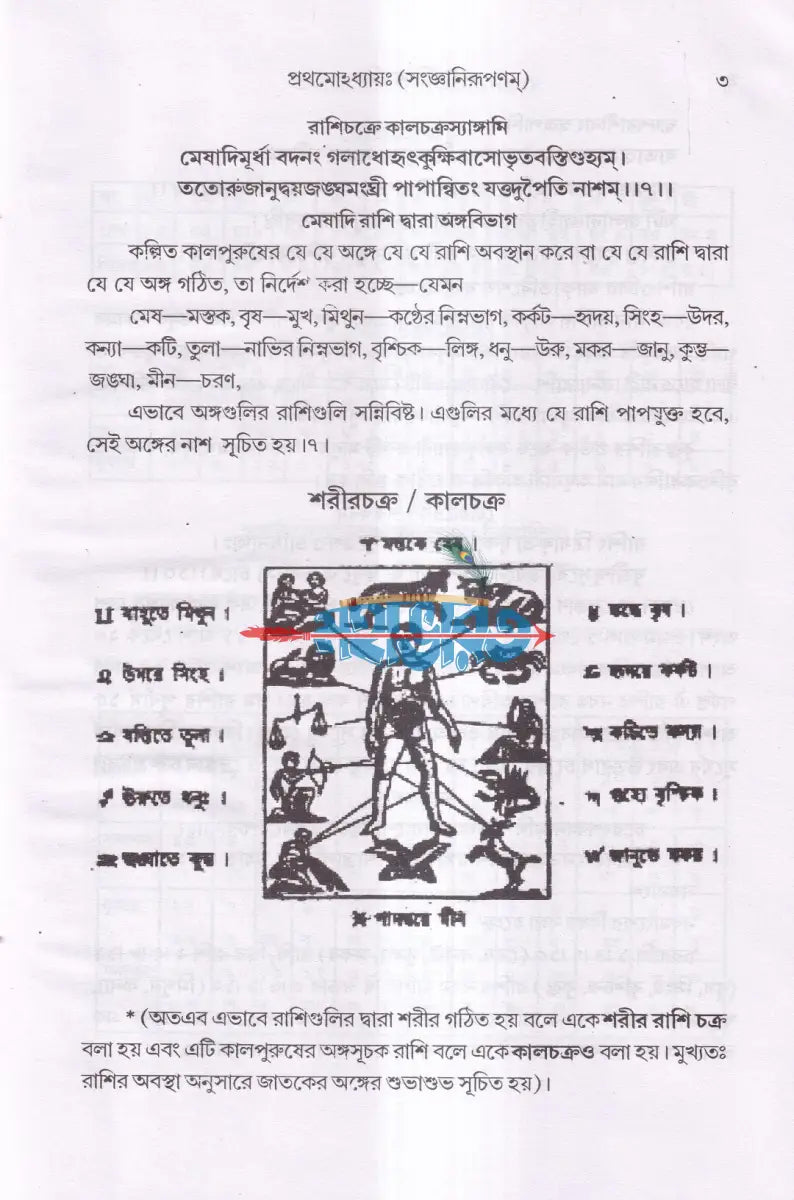 প্রথমোঽধ্যায়ঃ (সংজ্ঞানিরূপণম্) ৩
রাশিচক্রে কালচক্রস্যাঙ্গামি
মেষাদিমূর্ধা বদনং গলাধোহৃৎকুক্ষিবাসোভৃতবস্তিগুহ্যম্।
ততোরুজানুদ্বয়জঙ্ঘমংঘ্রী পাপান্বিতং যত্তদুপৈতি নাশম্।।৭।।
মেষাদি রাশি দ্বারা অঙ্গবিভাগ
কল্পিত কালপুরুষের যে যে অঙ্গে যে যে রাশি অবস্থান করে বা যে যে রাশি দ্বারা
যে যে অঙ্গ গঠিত, তা নির্দেশ করা হচ্ছে—যেমন
মেষ—মস্তক, বৃষ—মুখ, মিথুন—কণ্ঠের নিম্নভাগ, কর্কট—হৃদয়, সিংহ—উদর,
কন্যা—কটি, তুলা—নাভির নিম্নভাগ, বৃশ্চিক—লিঙ্গ, ধনু—উরু, মকর—জানু, কুম্ভ—
জঙ্ঘা, মীন—চরণ,
এভাবে অঙ্গগুলির রাশিগুলি সন্নিবিষ্ট। এগুলির মধ্যে যে রাশি পাপযুক্ত হবে,
সেই অঙ্গের নাশ সূচিত হয়।৭।
শরীরচক্র / কালচক্র
♈ মস্তকে মেষ।
♊ বাহুতে মিথুন।
♌ উদরে সিংহ।
♎ বস্তিতে তুলা।
♐ উরুতে ধনুঃ।
♒ জঙ্ঘাতে কুম্ভ।
মহাভারত
♉ মুখে বৃষ।
♋ হৃদয়ে কর্কট।
♍ কটিতে কন্যা।
♏ গুহ্যে বৃশ্চিক।
♑ জানুতে মকর।
♓ পাদদ্বয়ে মীন
* (অতএব এভাবে রাশিগুলির দ্বারা শরীর গঠিত হয় বলে একে শরীর রাশি চক্র
বলা হয় এবং এটি কালপুরুষের অঙ্গসূচক রাশি বলে একে কালচক্রও বলা হয়। মুখ্যতঃ
রাশির অবস্থা অনুসারে জাতকের অঙ্গের শুভাশুভ সূচিত হয়)।